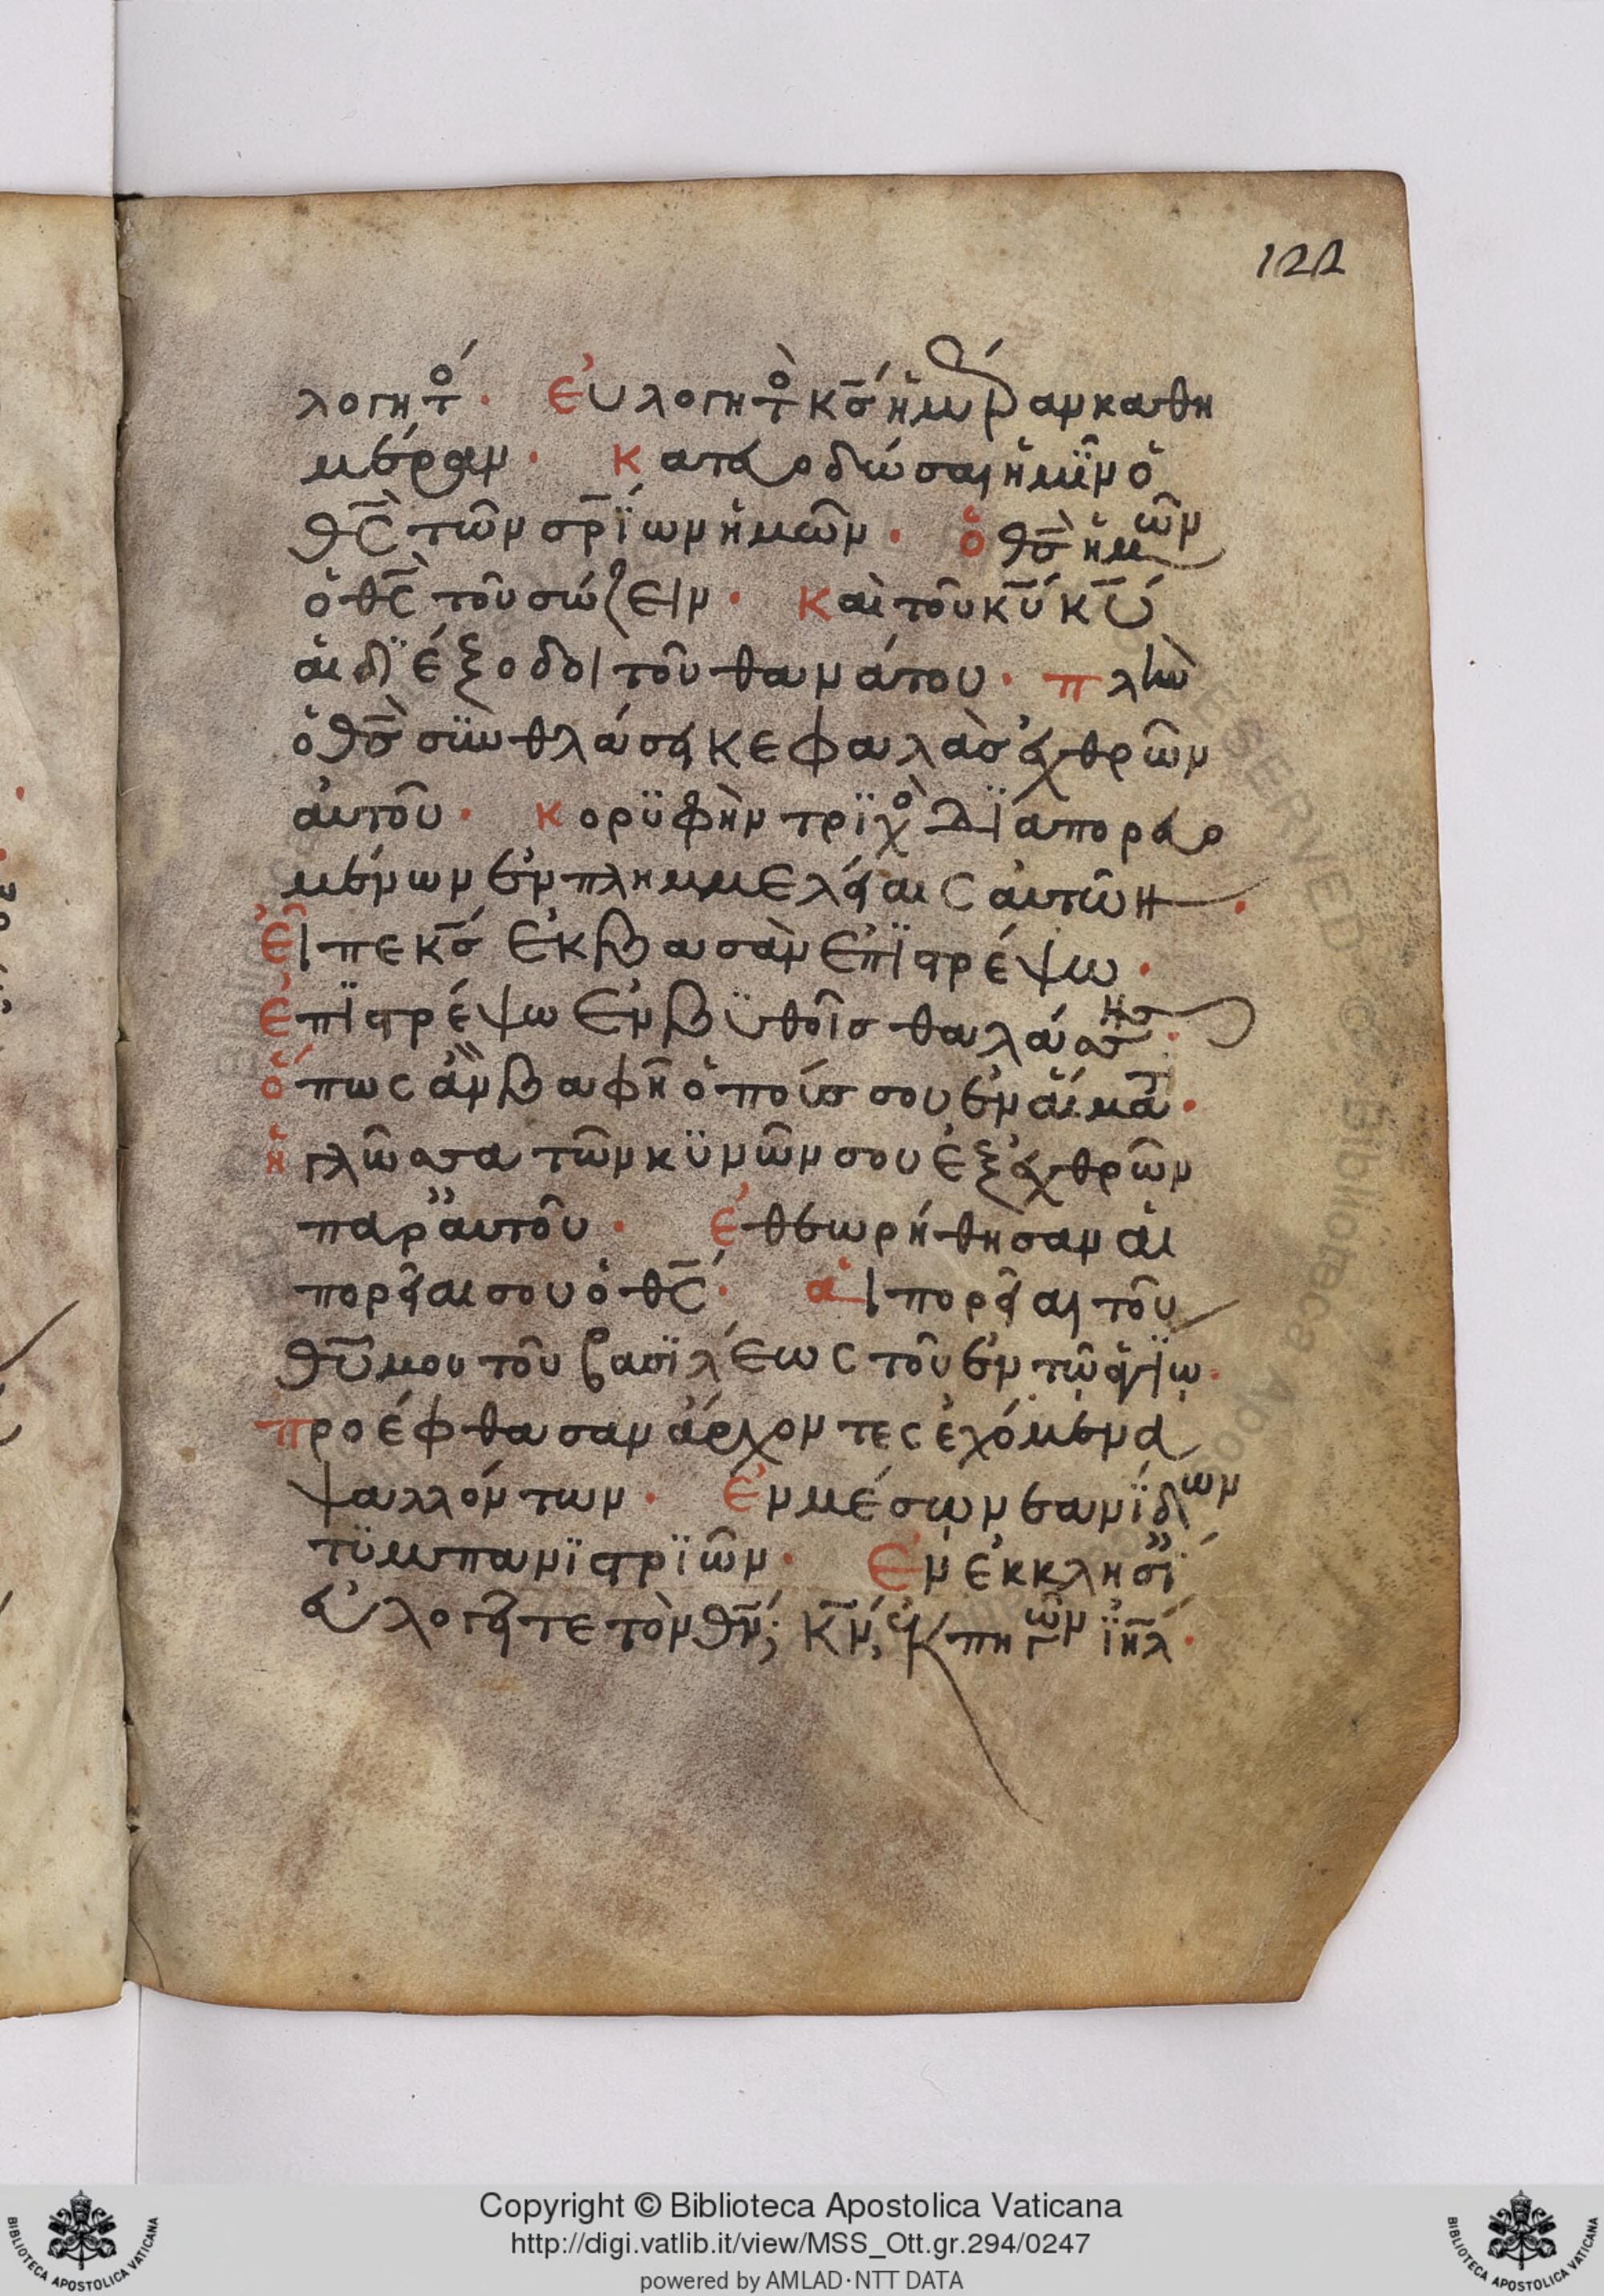 122
λογητό. Εὐλογητὸ κσ́ ἡμέραν καθη
μέραν. Κατευοδώσαι ἡμῖν ὁ
θς̄ τῶν σρ̄ΐων ἡμῶν. ὁ θσ̄ ἡμῶν
ὁ θς̄ τοῦ σώζειν. Καὶ τοῦ κῡ κῡ
αἱ διέξοδοι τοῦ θανάτου. πλὴν
ὁ θσ̄ συνθλάσει κεφαλὰσ ἐχθρῶν
αὐτοῦ. κορϋφὴν τρϊχὸ διαπορευο
μένων ἐν πλημμελείαις αὐτῶν.
Εἶπε κσ́ ἐκ βασὰν ἐπϊστρέψω.
Ἐπϊστρέψω ἐν βϋθοῖσ θαλάσσησ.
ὅπως ἂν βαφῆ ὁ πούσ σου ἐν αἵματι.
ἡ γλῶσσα τῶν κϋνῶν σου ἐξ ἐχθρῶν
παρ αὐτοῦ. ἐθεωρήθησαν αἱ
πορεῖαι σου ὁ θς̄. αἱ πορεῖαι τοῦ
θῡ μου τοῦ βασϊλέως τοῦ ἐν τῷ ἁγίῳ.
προέφθασαν ἄρχοντες ἐχόμενα
ψαλλόντων. Ἐν μέσῳ νεανΐδων
τϋμπανϊστρϊῶν. Ἐν ἐκκλησΐ
εὐλογεῖτε τὸν θν̄, κν̄, ἐκ πηγῶν ϊηλ̄.
Copyright © Biblioteca Apostolica Vaticana
http://digi.vatlib.it/view/MSS_Ott.gr.294/0247
powered by AMLAD·NTT DATA
BIBLIOTECA APOSTOLICA VATICANA
BIBLIOTECA APOSTOLICA VATICANA